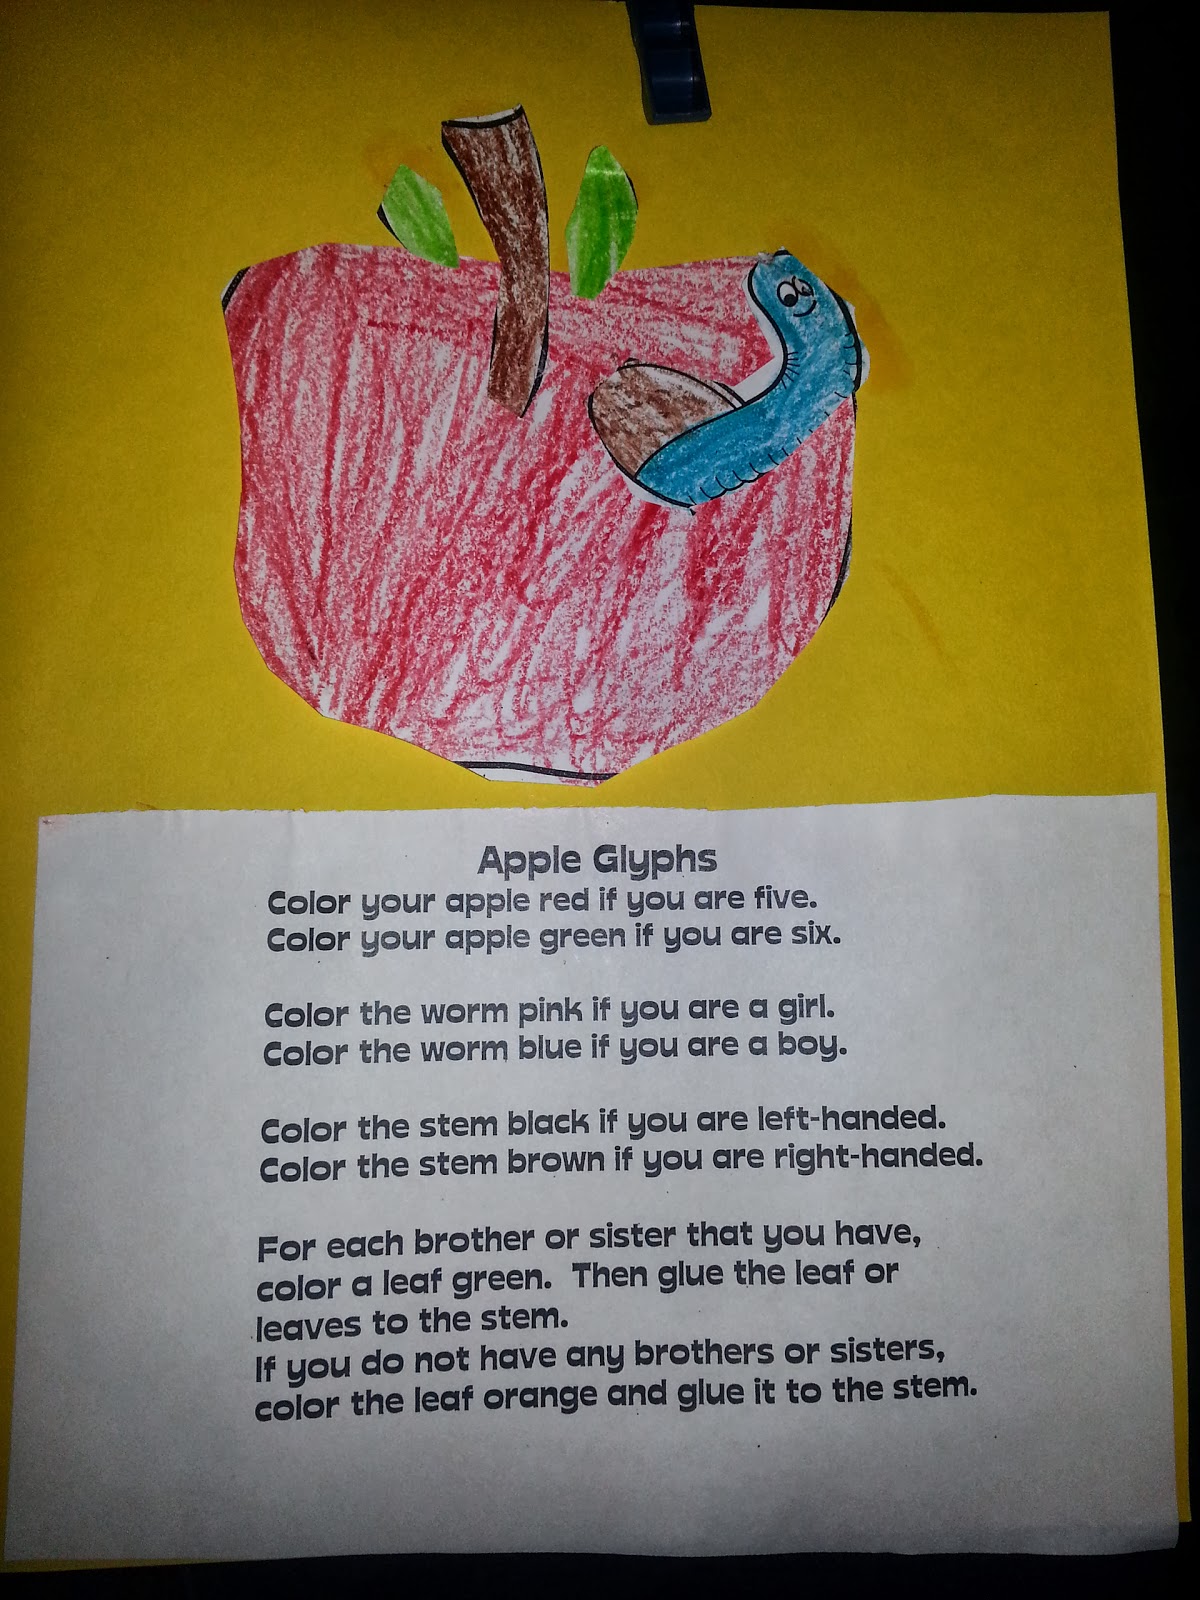 Apple Glyphs
Color your apple red if you are five.
Color your apple green if you are six.
Color the worm pink if you are a girl.
Color the worm blue if you are a boy.
Color the stem black if you are left-handed.
Color the stem brown if you are right-handed.
For each brother or sister that you have,
color a leaf green. Then glue the leaf or
leaves to the stem.
If you do not have any brothers or sisters,
color the leaf orange and glue it to the stem.